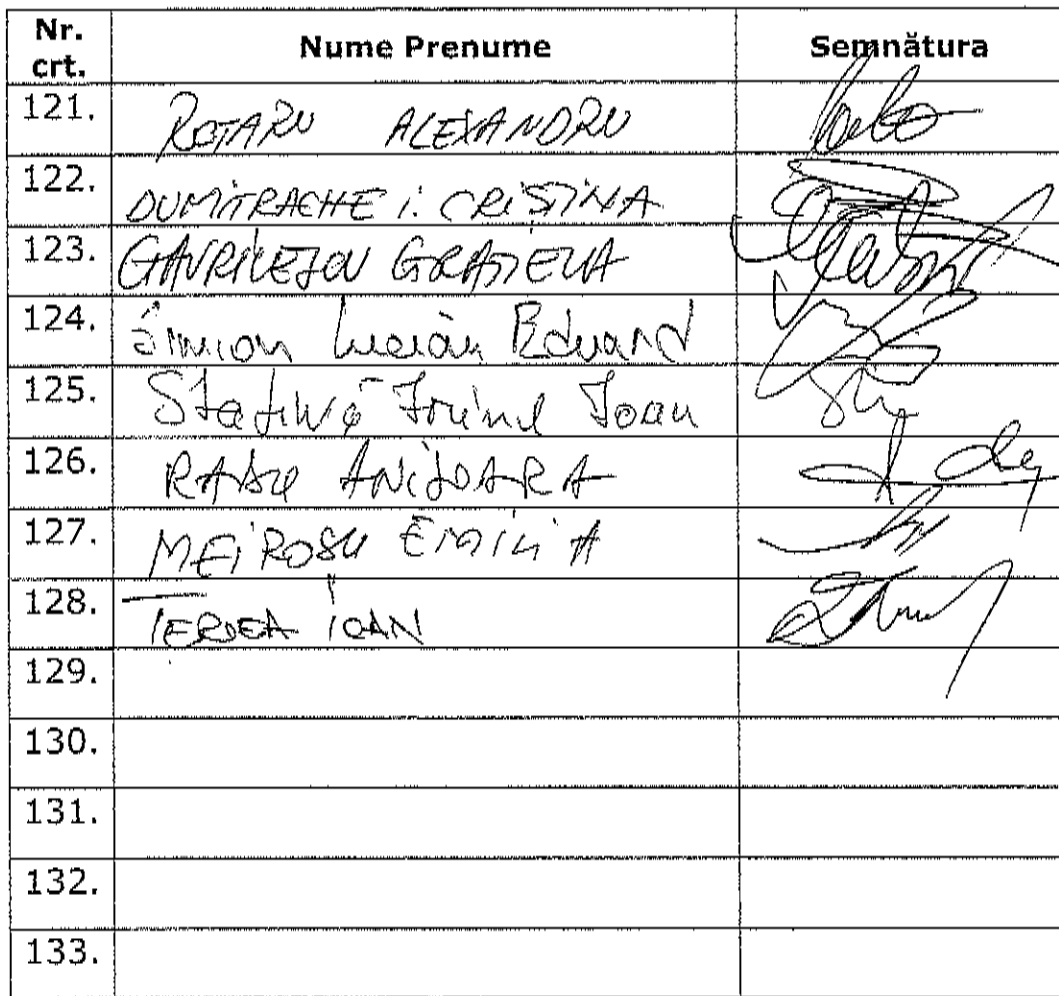 Nr. crt. Nume Prenume Semnătura
121. ROTARU ALEXANDRU
122. DUMITRACHE I. CRISTINA
123. GAVRILEȚOU GRAȚIELA
124. Simion Lucian Eduard
125. Ioan
126. RADU ANIȘOARA
127. MEIROSU EMILIA
128. IOAN
129.
130.
131.
132.
133.